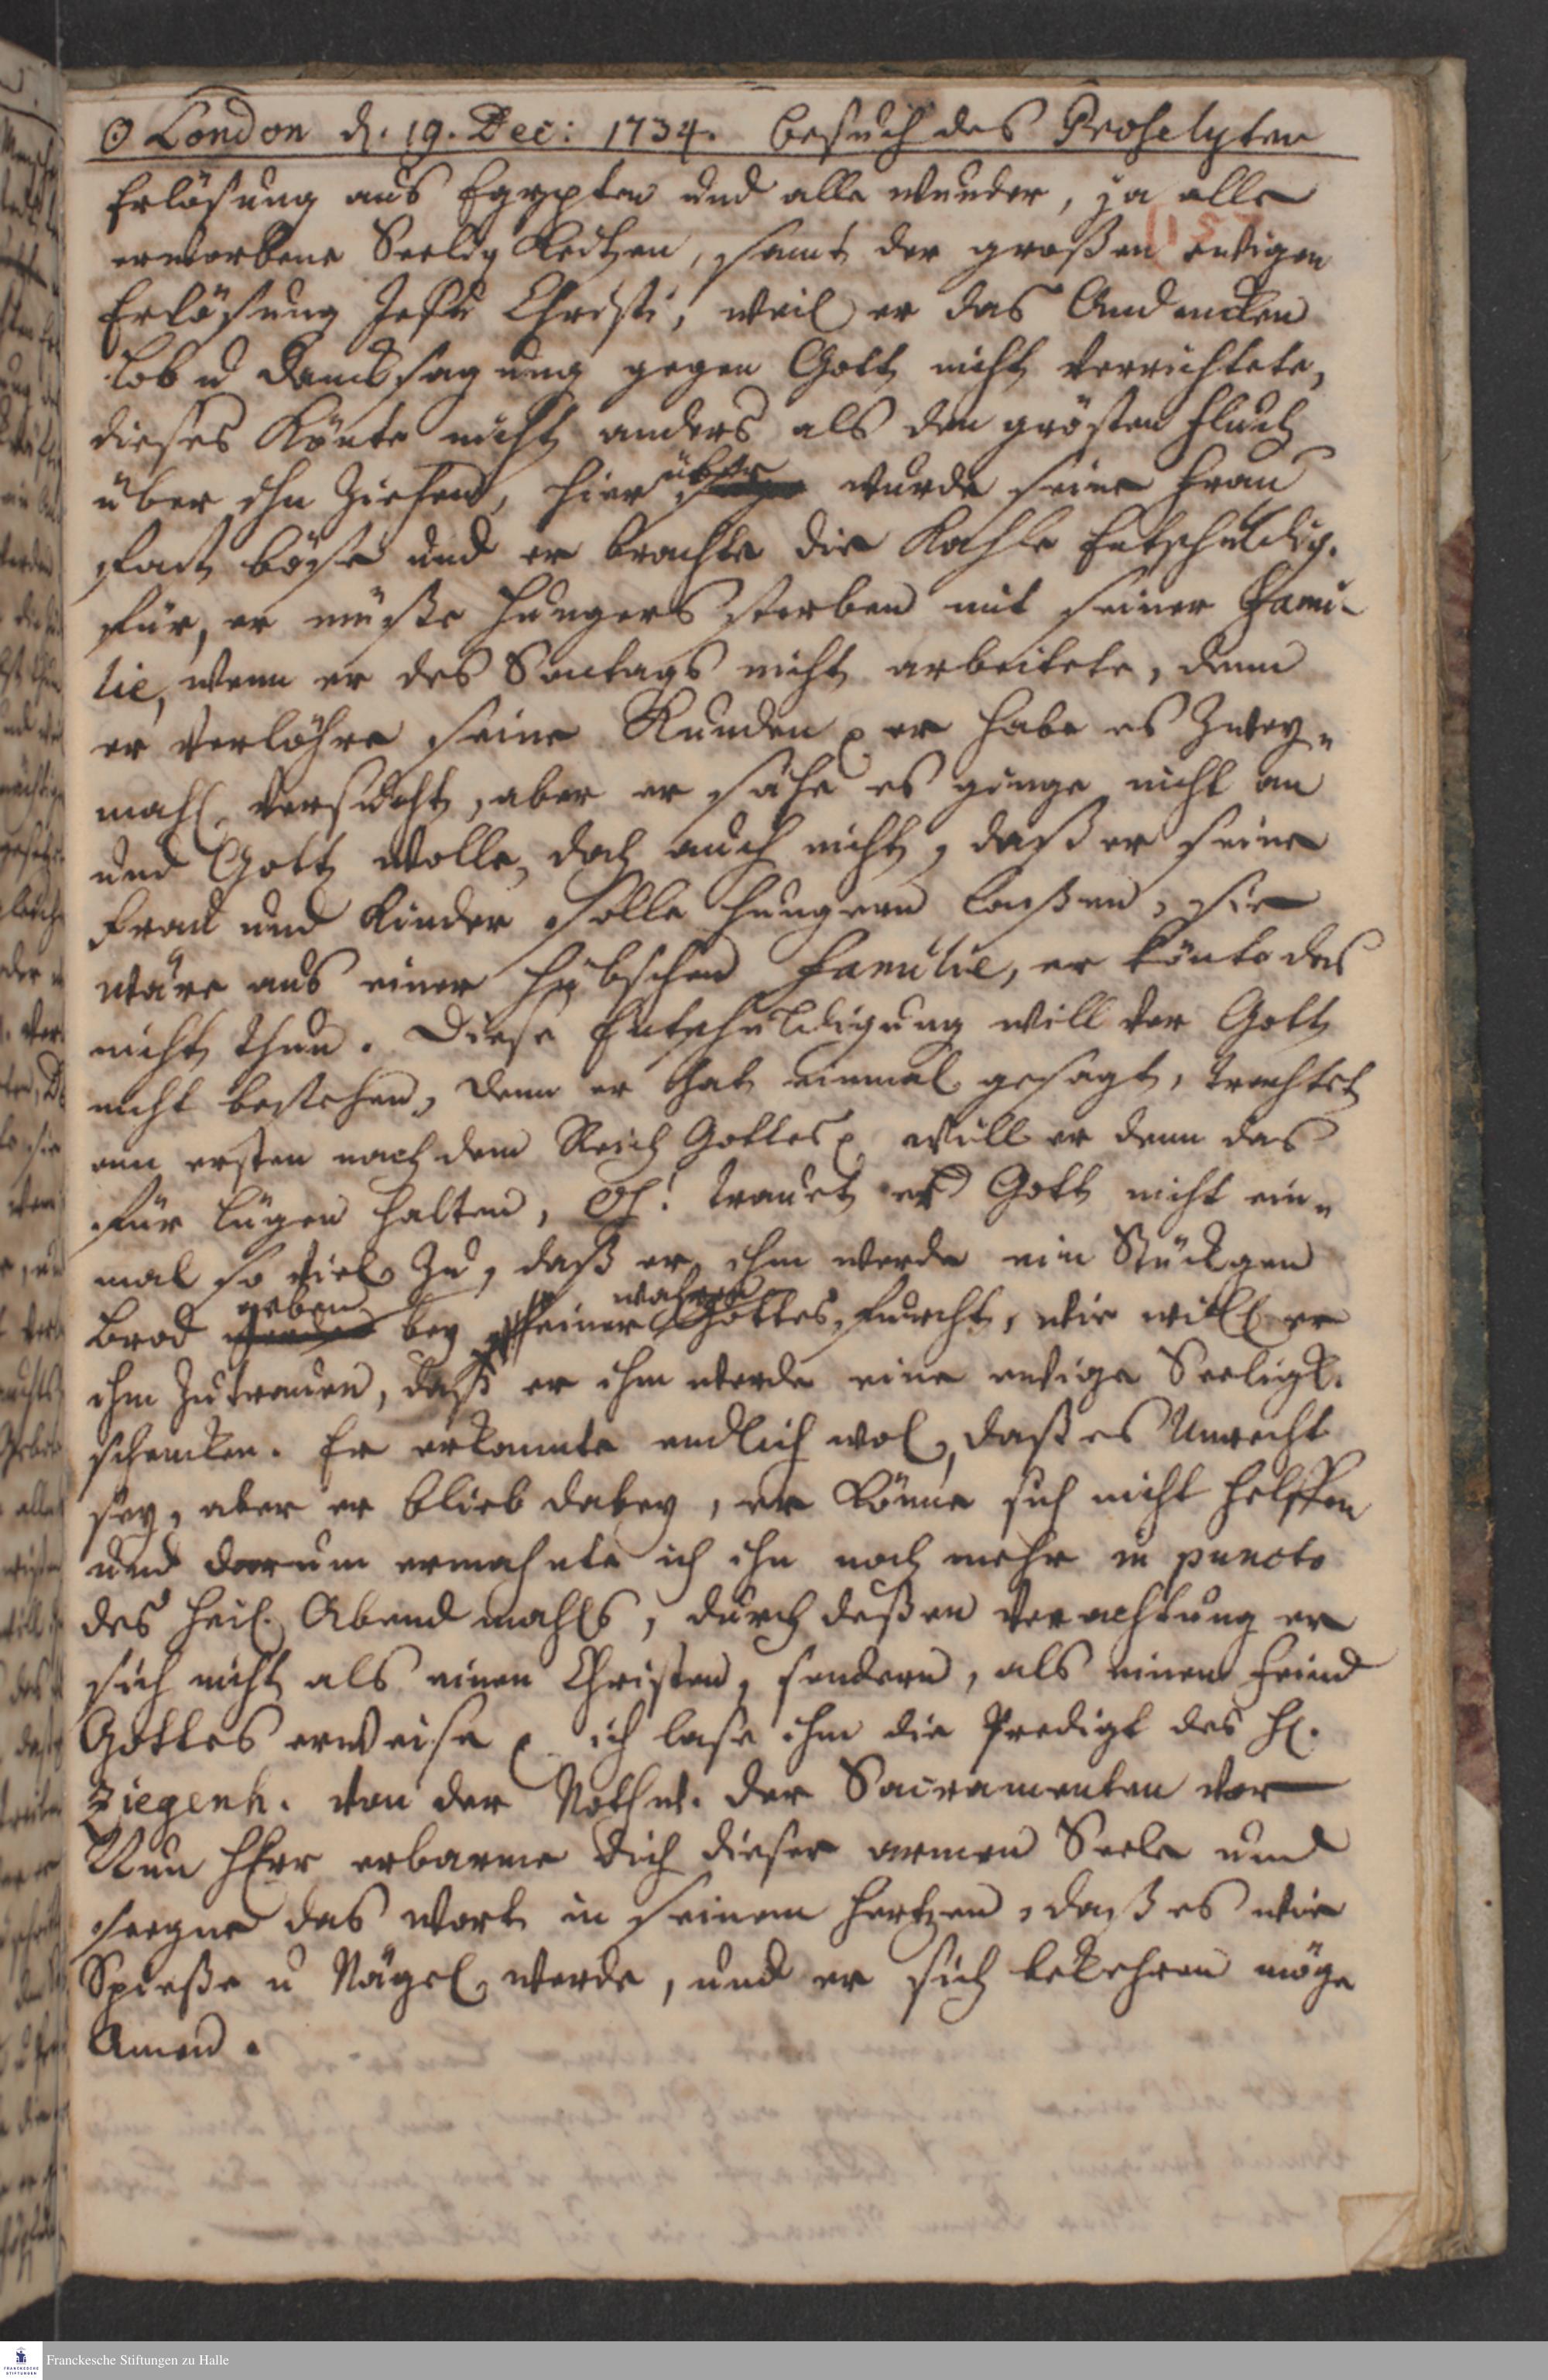 ☉ London d. 19. Dec: 1734. Besuch des Proselyten
Erlösung aus Egypten und alle wunder, ja alle
157
erworbene Seeligkeiten, samt der großen ewigen
Erlösung Jesu Christi, weil er das Andencken
Lob u Dancksagung gegen Gott nicht verrichtete,
dieses könte nicht anders als den grösten Fluch
über ihn ziehen, hier über wurde seine Frau
fast böse und er brachte die kahle Entschuldig.
für, er müste Hungers sterben mit seiner Fami-
lie, wenn er des Sontags nicht arbeitete, denn
er verlöhre seine Kunden er habe es zwey-
mahl versucht, aber er sähe es ginge nicht an
und Gott wolle doch auch nicht, daß er seine
Frau und Kinder solle hungern laßen, sie
wäre aus einer hübschen Familie, er könte das
nicht thun. Diese Entschuldigung will vor Gott
nicht bestehen, denn er hat einmal gesagt, trachtet
am ersten nach dem Reich Gottes will er denn das
für Lügen halten, O! trauet er Gott nicht ein-
mal so viel zu, daß er ihm werde ein Stückgen
Brod geben bey seiner wahren Gottes Furcht, wie will er
ihm zutrauen, daß er ihm werde eine ewige Seeligk.
schencken. Er erkannte endlich wol, daß es Unrecht
sey, aber er blieb dabey, er könne sich nicht helffen
und darum ermahnte ich ihn noch mehr in puncto
des heil. Abendmahls, durch deßen Verachtung er
sich nicht als einen Christen, sondern, als einen Feind
Gottes erweise ich lase ihm die Predigt des H.
Ziegenh. von der Nothw. der Sacramenten vor
Nun HErr erbarme dich dieser armen Seele und
seegne das Wort in seinem Hertzen, daß es wie
Spieße u Nägel werde, und er sich bekehren möge
Amen.
Franckesche Stiftungen zu Halle